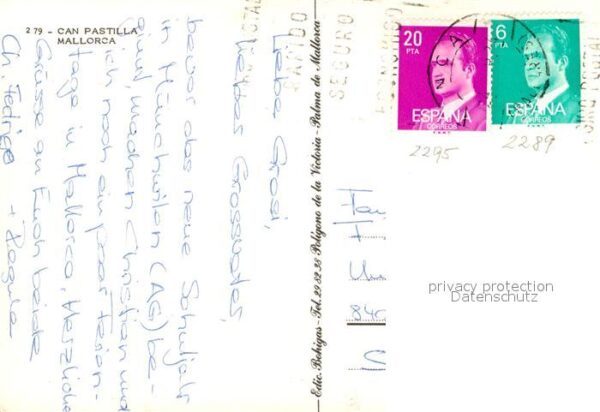 2 79 - CAN PASTILLA
MALLORCA
Liebe Grosi,
liebes Grossvater,
bevor das neue Schuljahr
in Münchwilen (AG) be-
ginnt, machen Christian und
ich noch ein paar Ferien-
tage in Mallorca. Herzliche
Grüsse an Euch beide
Ch. + Regula
Edic. Bohigas - Tel. 29 82 38 Polígono de la Victoria - Palma de Mallorca
RAPIDO
SEGURO
20
PTA
ESPAÑA
CORREOS
6
PTA
ESPAÑA
CORREOS
2295
2289
Fam
840
privacy protection
Datenschutz